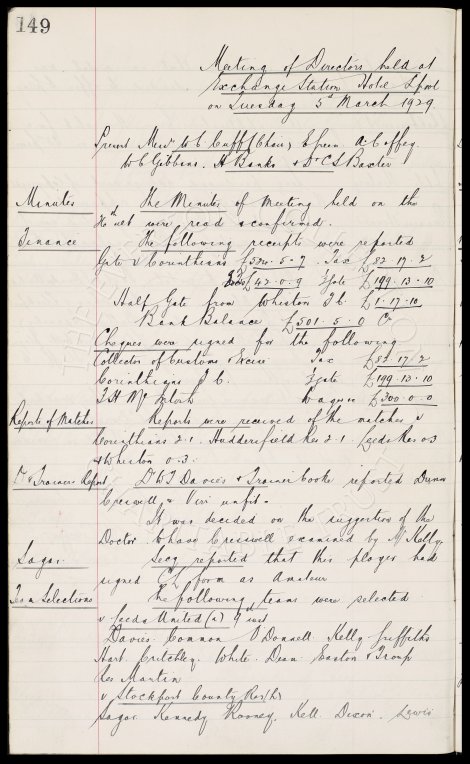 149
Meeting of Directors held at
Exchange Station Hotel Lpool
on Tuesday 5th March 1929
Present Messrs W C Cuff (Chair) E Green A C
W C Gibbins. H Banks & Dr C S Baxter
Minutes The Minutes of Meeting held on the
were read & confirmed.
Finance The following receipts were reported
Gate v Corinthians £534. 5. 7. Tax £83. 17. 2
£42. 0. 9 ½ Gate £199. 13. 10
Half Gate from Whiston F C. £1. 17. 10
Bank Balance £501. 5. 0 Cr
Cheques were signed for the following
Collector of Customs & Excise Tax £83. 17. 2
Corinthians F. C. ½ Gate £199. 13. 10
T. H. McIntosh Wages £300. 0. 0
Reports of Matches Reports were received of the matches v
Corinthians 2.1. Huddersfield Res 2.1. Leeds Res 0.3
& Whiston 0.3.
Dr & Trainers Report Dr W T Davies & Trainer Cooke reported Dunn
Creswell & Virr unfit.
It was decided on the suggestion of the
Doctor to have Creswell examined by Mr Kelly.
Sagar. Secy reported that this player had
signed form as Amateur
Team Selections The following teams were selected
v Leeds United (a) 9th inst
Davies. Common O'Donnell. Kelly Griffiths
Hart. Critchley. White. Dean Easton & Troup
Res Martin
v Stockport County Res (h)
Sagar. Kennedy Rooney. Kell. Dixon. Lewis